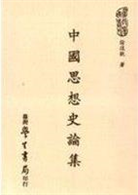 徐復觀 著
中國思想史論集
臺灣學生書局印行